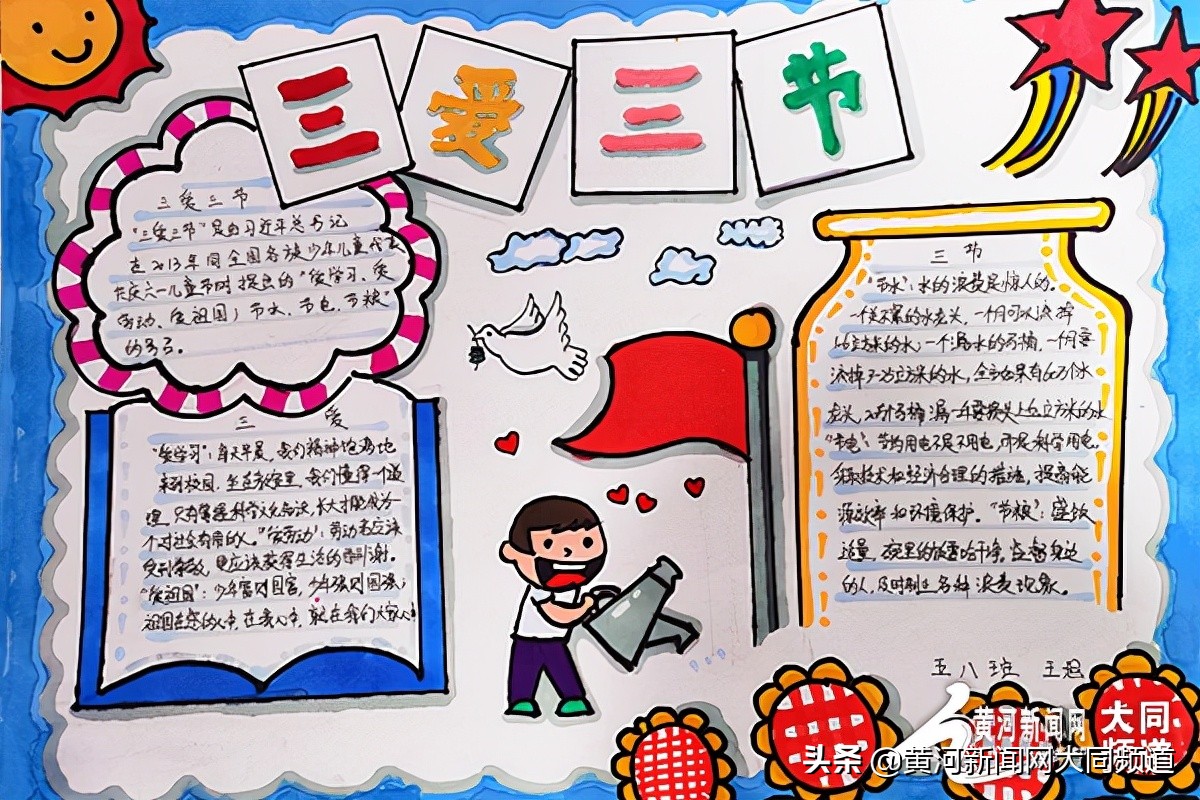 三爱三节
三爱三节
"三爱三节"是由习近平总书记
在2013年同全国各族少年儿童代表
共庆六一儿童节时提出的"爱学习、爱
劳动、爱祖国；节水、节电、节粮"
的号召。
三爱
"爱学习"：每天早晨，我们精神饱满地
来到校园，坐在教室里，我们懂得一个道
理，只有掌握科学文化知识，长大才能成为一
个对社会有用的人。"爱劳动"：劳动者应该
受到尊敬，更应该获得生活的
"爱祖国"：少年富则国富，少年强则国强；
祖国在您的心中，在我心中，就在我们大家心中
三节
"节水"：水的浪费是惊人的。
一个关不紧的水龙头，一个月可以流掉
立方米的水；一个漏水的马桶，一个月要
流掉3-25立方米的水，全市如果有60万个水
龙头，马桶漏水一年要损失上亿立方米的水
"节电"：节约用电不是不用电，而是科学用电，
采取技术和经济合理的措施，提高能
源效率和环境保护。"节粮"：盛饭
适量，碗里的饭要吃干净，监督身边
的人，及时制止各种浪费现象。
五八班 王冠
黄河新闻网 大同频道
头条 @黄河新闻网大同频道